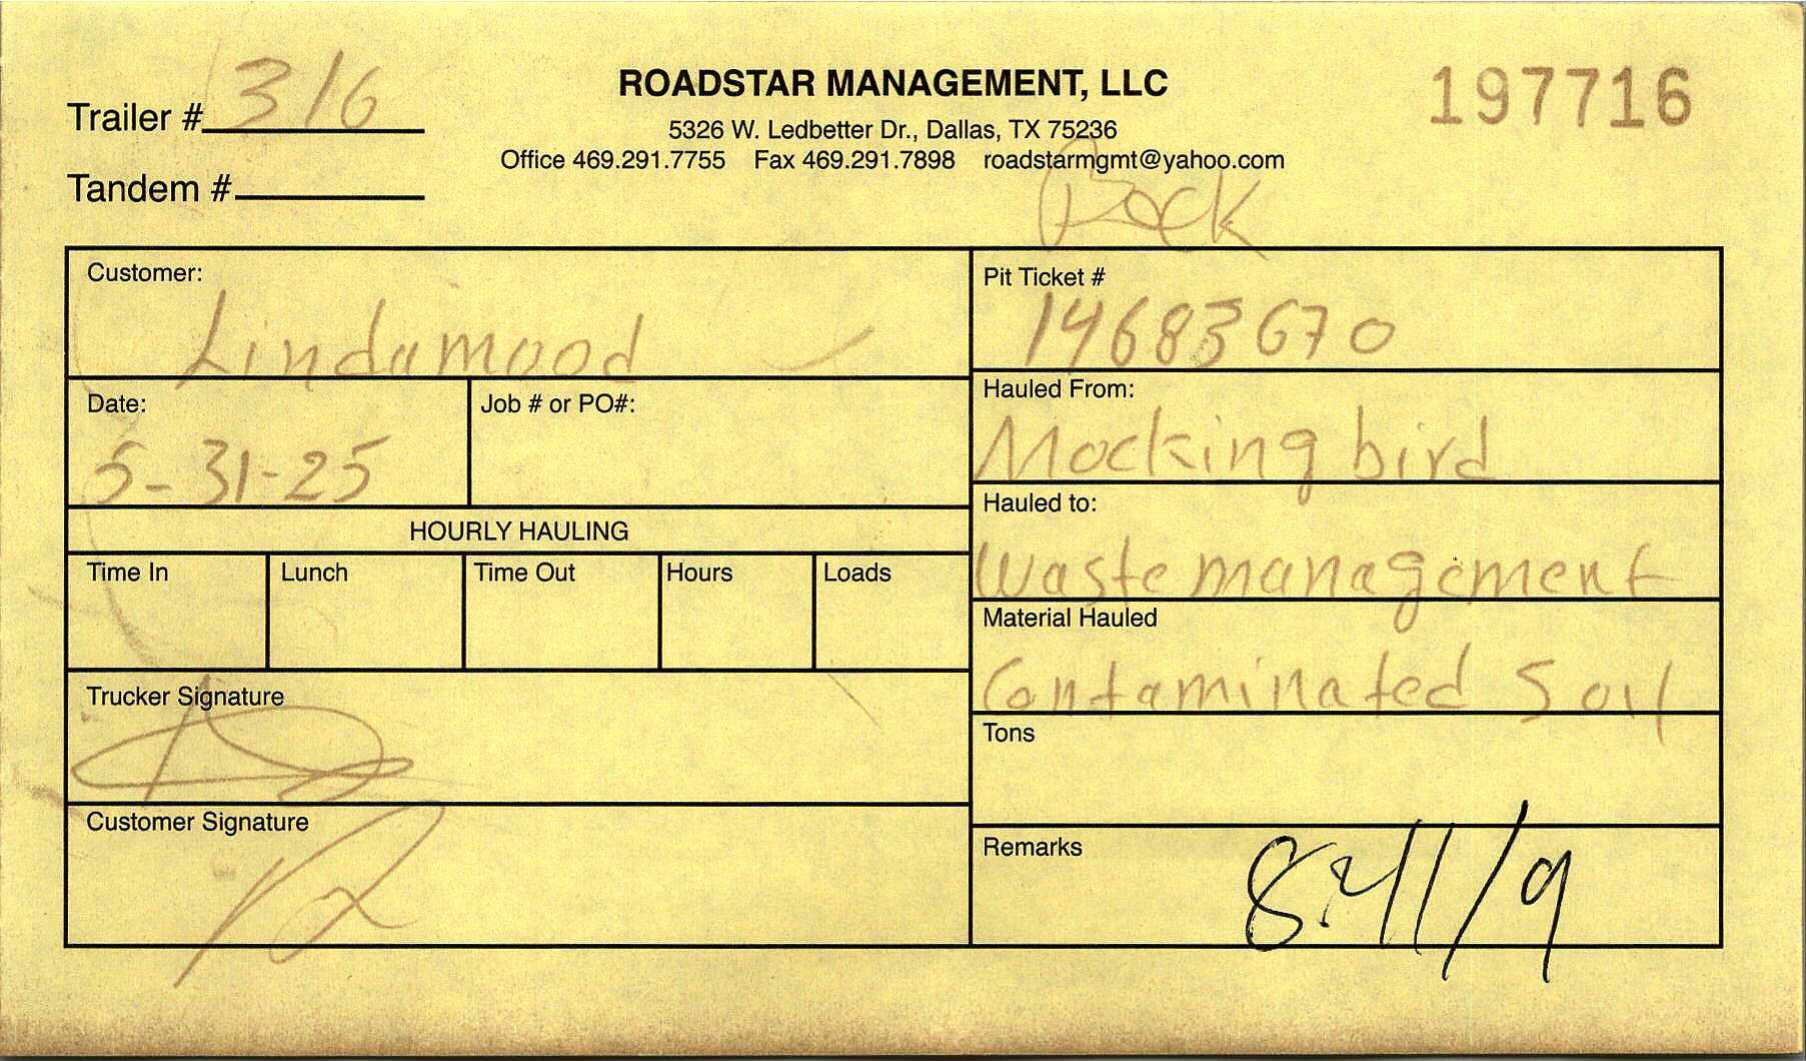 Trailer # 316
ROADSTAR MANAGEMENT, LLC
197716
5326 W. Ledbetter Dr., Dallas, TX 75236
Office 469.291.7755 Fax 469.291.7898 roadstarmgmt@yahoo.com
Tandem #
Customer:
Lindamood
Pit Ticket #
14683670
Date:
5-31-25
Job # or PO#:
Hauled From:
Mockingbird
HOURLY HAULING
Hauled to:
Waste management
Time In Lunch Time Out Hours Loads
Material Hauled
Contaminated Soil
Trucker Signature
Tons
Customer Signature
Remarks